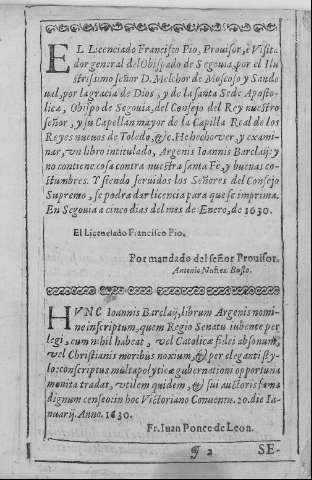 EL Licenciado Francisco Pio, Prouisor, è Visita
dor general del Obispado de Segouia, por el Ilu
strissimo señor D. Melchor de Moscoso y Sando
ual, por la gracia de Dios, y de la santa Sede Aposto-
lica, Obispo de Segouia, del Consejo del Rey nuestro
señor, y su Capellan mayor de la Capilla Real de los
Reyes nueuos de Toledo, &c. He hecho ver, y exami-
nar, vn libro intitulado, Argenis Ioannis Barclaij: y
no contiene cosa contra nuestra santa Fè, y buenas co-
stumbres. Y siendo seruidos los Señores del Consejo
Supremo, se podra dar licencia para que se imprima.
En Segouia a cinco dias del mes de Enero, de 1630.
El Licenciado Francisco Pio.
Por mandado del señor Prouisor.
Antonio Nuñez Bosto.
HVNC Ioannis Barclaij, librum Argenis nomi-
ne inscriptum, quem Regio Senatu iubente per
legi, cum nihil habeat, vel Catolicæ fidei absonum,
vel Christianis moribus noxium, & per eleganti sty-
lo: conscriptus multa polyticæ gubernationi opportuna
monita tradat, vtilem quidem, & sui auctoris fama
dignum censeo: in hoc Victoriano Conuentu. 20. die Ia-
nuarij. Anno. 1630.
Fr. Iuan Ponce de Leon.
¶ 2 SE-